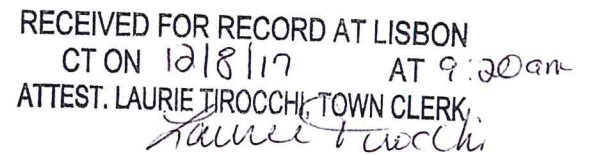 RECEIVED FOR RECORD AT LISBON
CT ON 12/8/17 AT 9:20am
ATTEST. LAURIE TIROCCHI, TOWN CLERK
Laurie Tirocchi